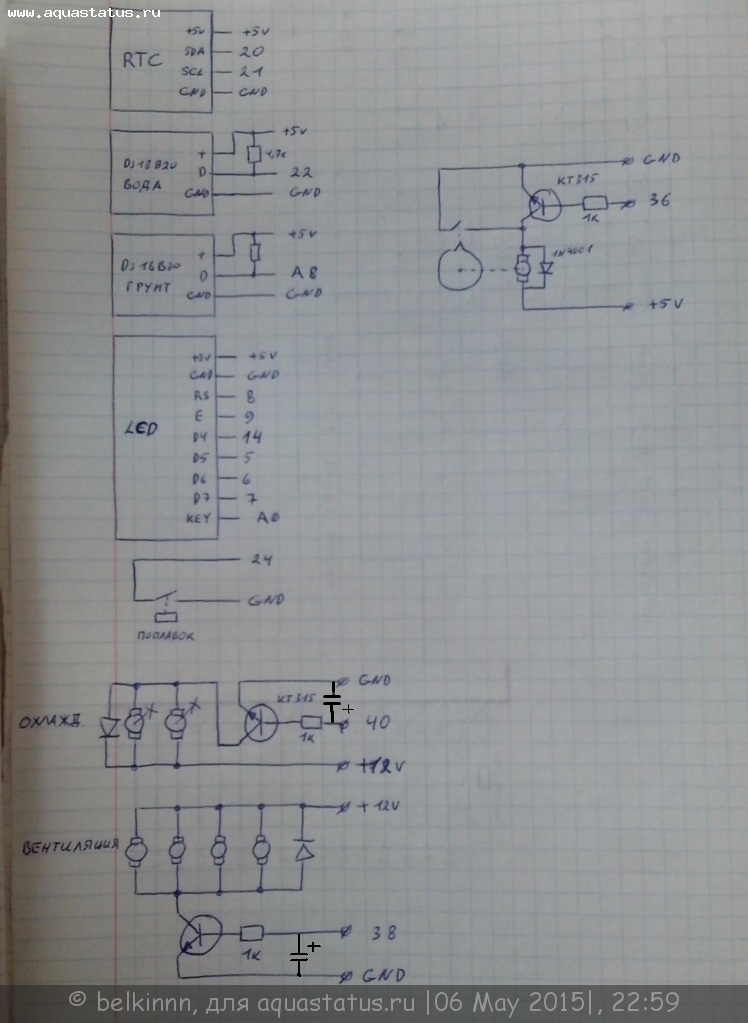 www.aquastatus.ru
RTC
+5V +5V
SDA 20
SCL 21
GND GND
+5V
DS18B20
ВОДА
+ 4,7к
D 22
GND GND
+5V
DS18B20
ГРУНТ
+
D A8
GND GND
LED
+5V +5V
GND GND
RS 8
E 9
D4 14
D5 5
D6 6
D7 7
KEY A0
24
GND
ПОПЛАВОК
GND
КТ315
36
1к
1N4001
+5V
ОХЛАЖД.
GND
КТ315
+
40
1к
+12V
ВЕНТИЛЯЦИЯ
+12V
38
1к
+
GND
© belkinnn, для aquastatus.ru |06 May 2015|, 22:59